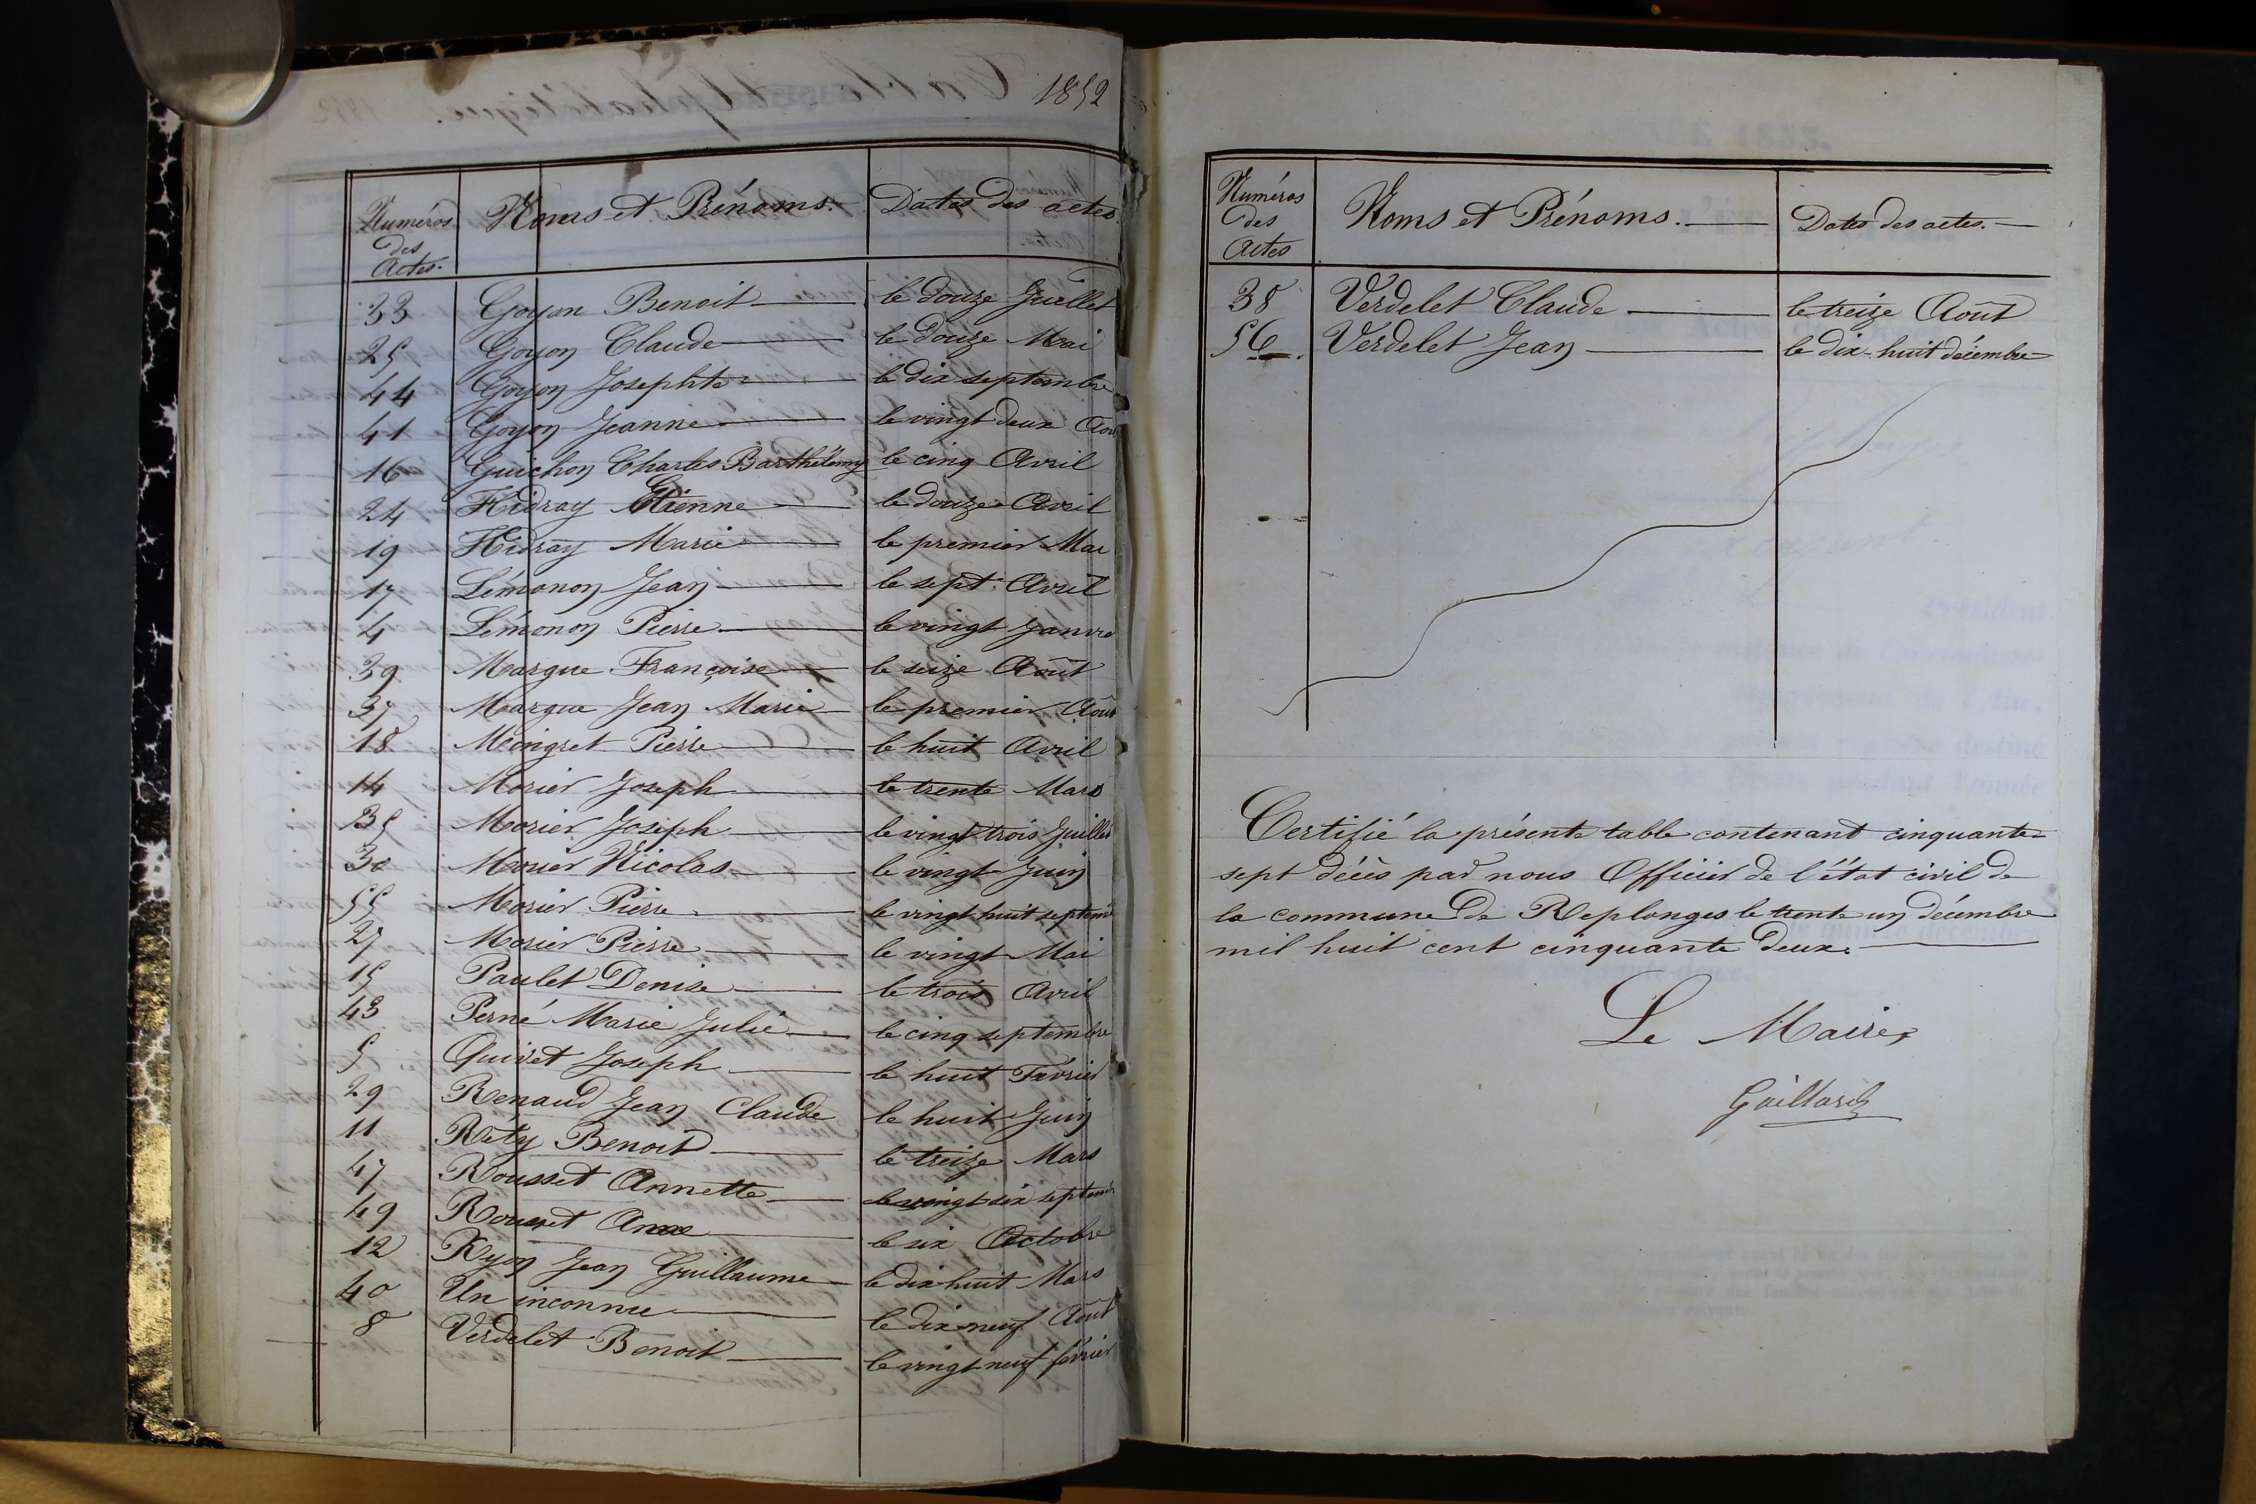 1852
Numéros
des
Actes.
Noms et Prénoms.
Dates des actes.
33 Goyon Benoit le douze Juillet
25 Goyon Claude le douze Mai
44 Goyon Josephte le dix septembre
41 Goyon Jeanne le vingt deux Aou
16 Guichon Charles Barthélemy le cinq Avril
24 Hidray Etienne le douze Avril
19 Hidray Marie le premier Mai
17 Lémonon Jean le sept Avril
4 Lémonon Pierre le vingt Janvie
39 Margue Françoise le seize Août
37 Margue Jean Marie le premier Aoû
18 Mongret Pierre le huit Avril
14 Morier Joseph le trente Mars
35 Morier Joseph le vingt trois Juillet
30 Morier Nicolas le vingt Juin
55 Morier Pierre le vingt huit septem
27 Morier Pierre le vingt Mai
15 Paulet Denise le trois Avril
43 Perné Marie Julie le cinq septembre
5 Quivet Joseph le huit Février
29 Renaud Jean Claude le huit Juin
11 Réty Benoit le treize Mars
47 Rousset Annette le vingt six septem
49 Rousset le six Octobre
12 Ryon Jean Guillaume le dix huit Mars
40 Un inconnu le dix neuf Août
8 Verdelet Benoit le vingt neuf février
Numéros
des
Actes
Noms et Prénoms.
Dates des actes.
38 Verdelet Claude le treize Août
56 Verdelet Jean le dix-huit décembre
Certifié la présente table contenant cinquante
sept décès par nous Officier de l'état civil de
la commune de Replonges le trente un décembre
mil huit cent cinquante deux.
Le Maire,
Gaillard